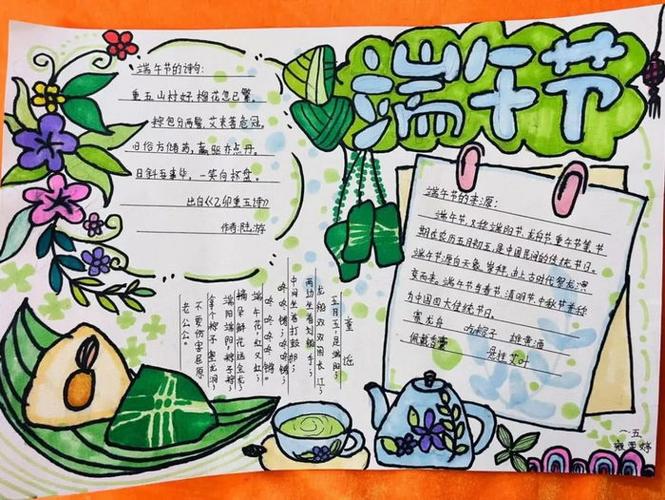 端午节
端午节的诗句:
重五山村好,榴花忽已繁。
粽包分两髻,艾束著危冠。
旧俗方储药,羸躯亦点丹。
日斜吾事毕,一笑向杯盘。
出自《乙卯重五诗》
作者:陆游
端午节的来源:
端午节,又称端阳节、龙舟节、重午节等,节
期在农历五月初五,是中国民间的传统节日。
端午节源自天象崇拜,由上古时代祭龙演
变而来。端午节与春节、清明节、中秋节并称
为中国四大传统节日。
赛龙舟 吃粽子 雄黄酒
佩戴香囊 悬挂艾叶
童谣
五月五,是端阳;
龙船双双闹长江;
两边坐着划船手;
中间坐着打鼓郎;
咚咚锵;咚咚锵
端午花,红又红;
摘朵鲜花送金龙;
端阳端阳粽子粽;
不要伤害屈原
老公公。
一.五